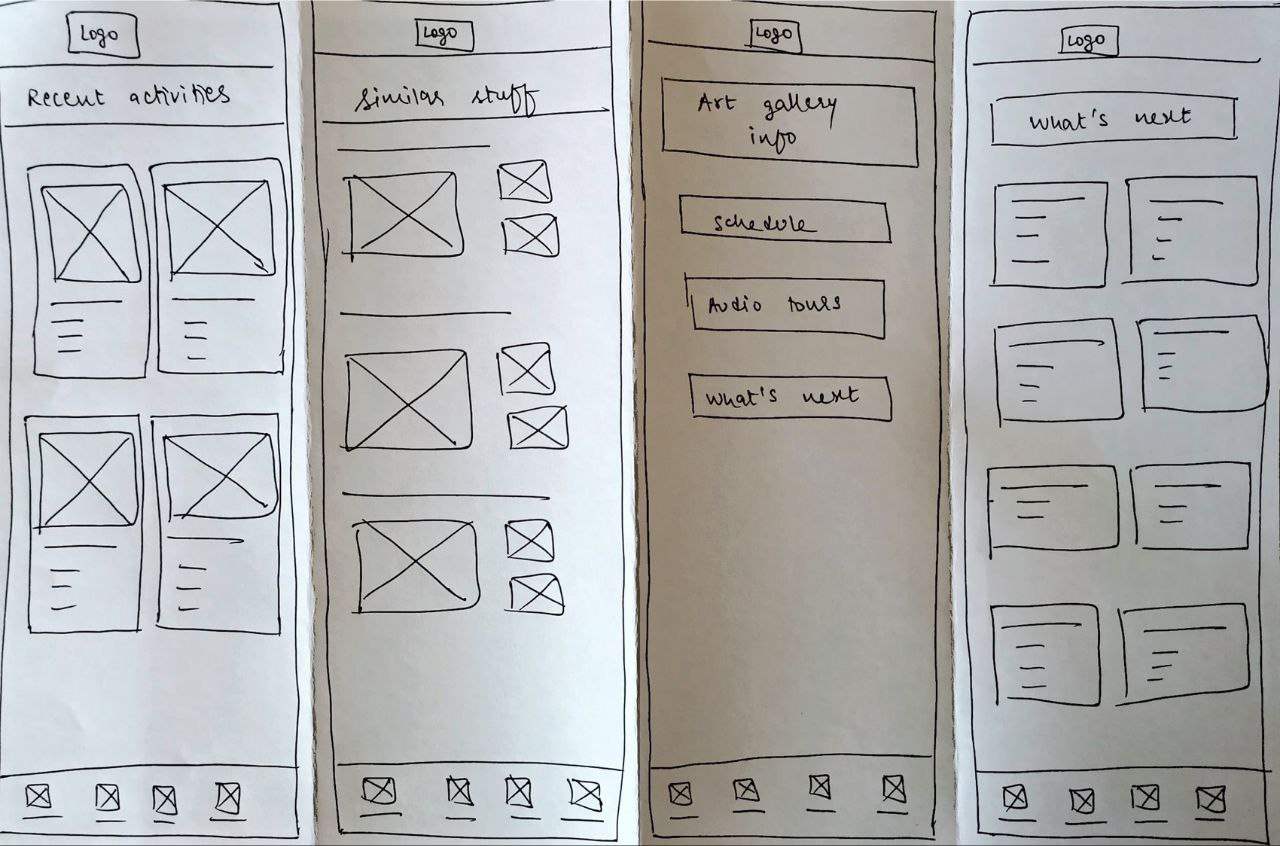 Logo
Recent activities
Logo
Similar stuff
Logo
Art gallery
info
schedule
Audio tours
What's next
Logo
What's next